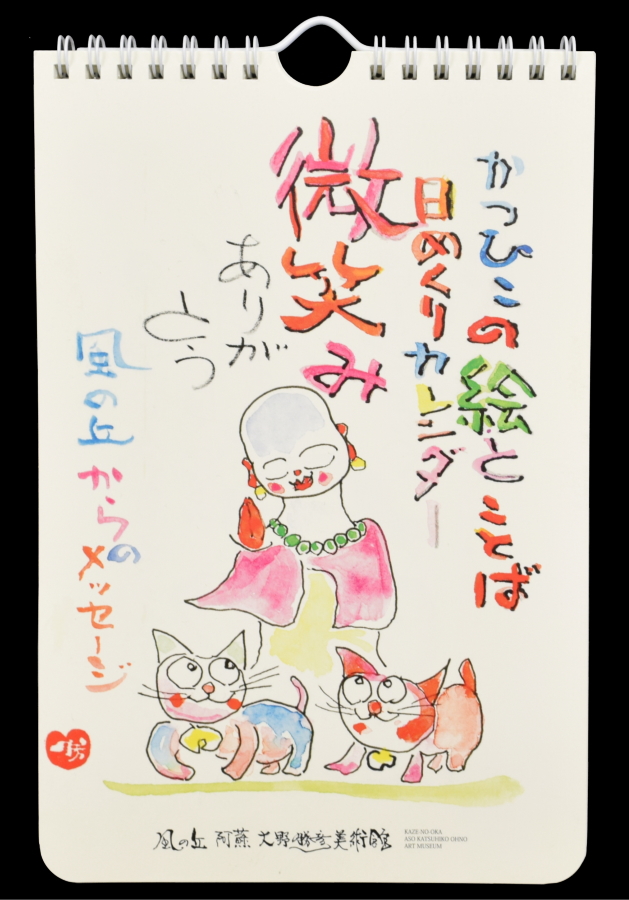 かつひこの絵とことば
日めくりカレンダー
微笑み
ありが
とう
風の丘からの
メッセージ
風の丘 阿蘇 大野勝彦美術館
KAZE NO OKA
ASO KATSUHIKO OHNO
ART MUSEUM